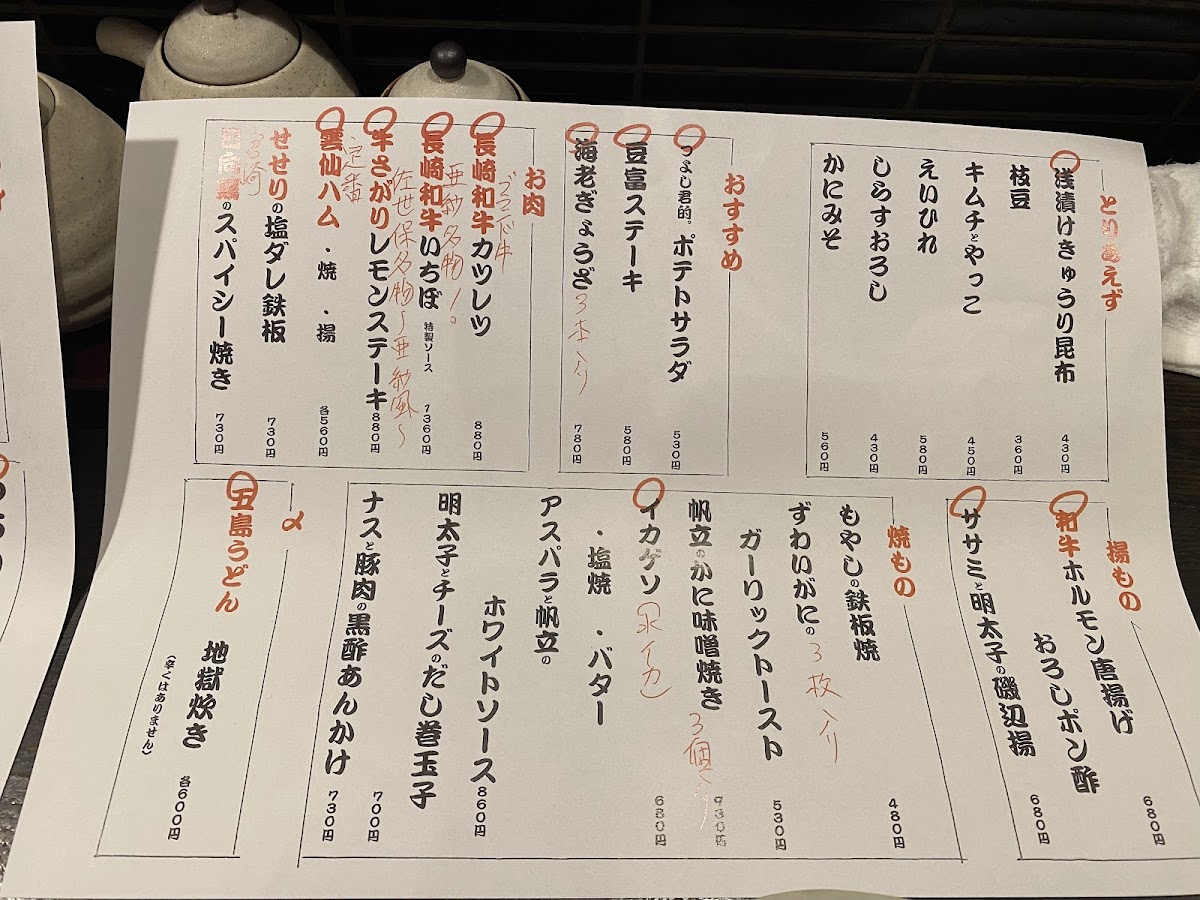 とりあえず
浅漬けきゅうり昆布 430円
枝豆 360円
キムチとやっこ 450円
えいひれ 580円
しらすおろし 430円
かにみそ 560円
おすすめ
つよし君的。ポテトサラダ 530円
豆富ステーキ 580円
海老ぎょうざ 3本入り 780円
お肉
ブランド牛
長崎和牛カツレツ 880円
亜紗名物!。
長崎和牛いちぼ 特製ソース 1360円
佐世保名物~亜紗風~
牛さがりレモンステーキ 880円
定番
雲仙ハム ・焼 ・揚 各560円
せせりの塩ダレ鉄板 730円
宮崎
のスパイシー焼き 730円
揚もの
和牛ホルモン唐揚げ
おろしポン酢 680円
ササミと明太子の磯辺揚 680円
焼もの
もやしの鉄板焼 480円
ずわいがにの 3枚入り
ガーリックトースト 530円
帆立のかに味噌焼き 3個入り
イカゲソ (水イカ) 680円
・塩焼 ・バター
アスパラと帆立の
ホワイトソース 860円
明太子とチーズのだし巻玉子 700円
ナスと豚肉の黒酢あんかけ 730円
〆
五島うどん
地獄炊き 各600円
(辛くはありません)